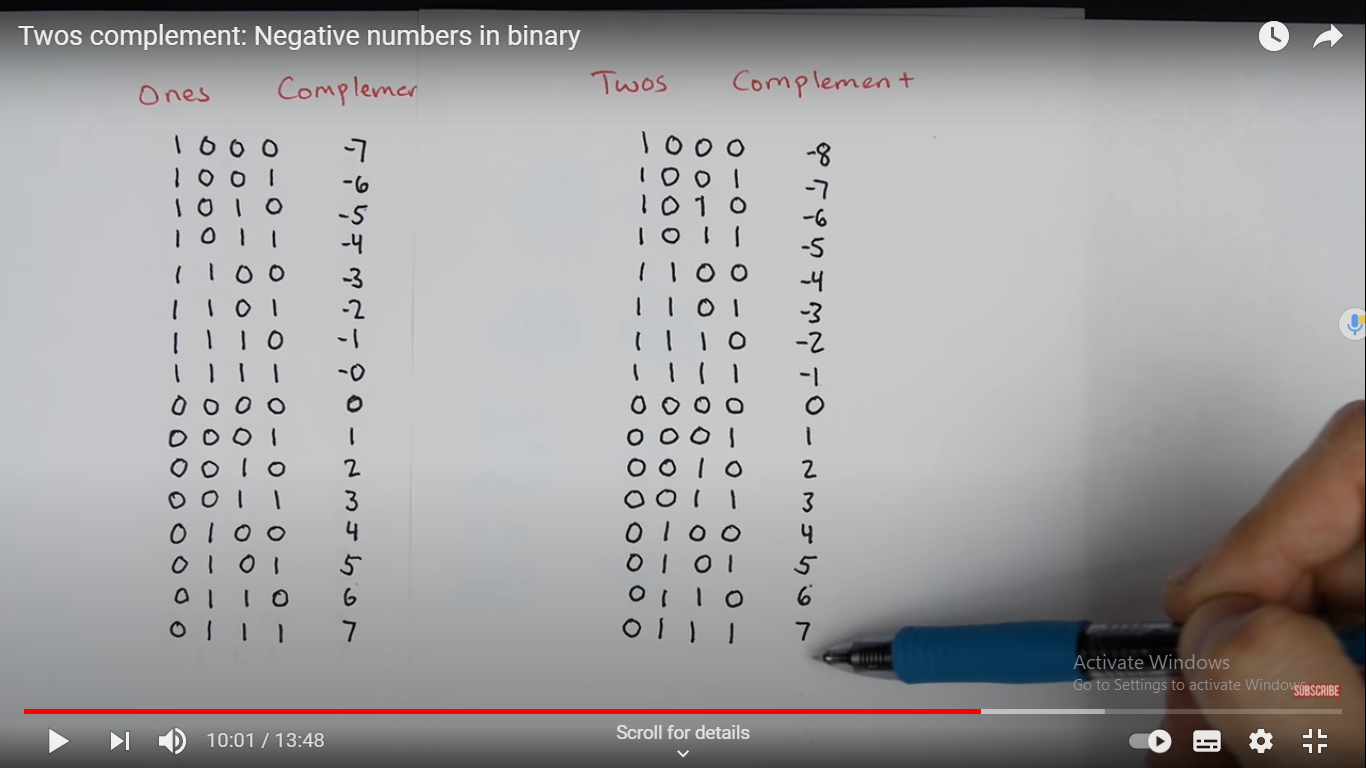 Twos complement: Negative numbers in binary
Ones Complemen
Twos Complement
1 0 0 0 -7
1 0 0 1 -6
1 0 1 0 -5
1 0 1 1 -4
1 1 0 0 -3
1 1 0 1 -2
1 1 1 0 -1
1 1 1 1 -0
0 0 0 0 0
0 0 0 1 1
0 0 1 0 2
0 0 1 1 3
0 1 0 0 4
0 1 0 1 5
0 1 1 0 6
0 1 1 1 7
1 0 0 0 -8
1 0 0 1 -7
1 0 1 0 -6
1 0 1 1 -5
1 1 0 0 -4
1 1 0 1 -3
1 1 1 0 -2
1 1 1 1 -1
0 0 0 0 0
0 0 0 1 1
0 0 1 0 2
0 0 1 1 3
0 1 0 0 4
0 1 0 1 5
0 1 1 0 6
0 1 1 1 7
Activate Windows
Go to Settings to activate Windows.
SUBSCRIBE
10:01 / 13:48
Scroll for details